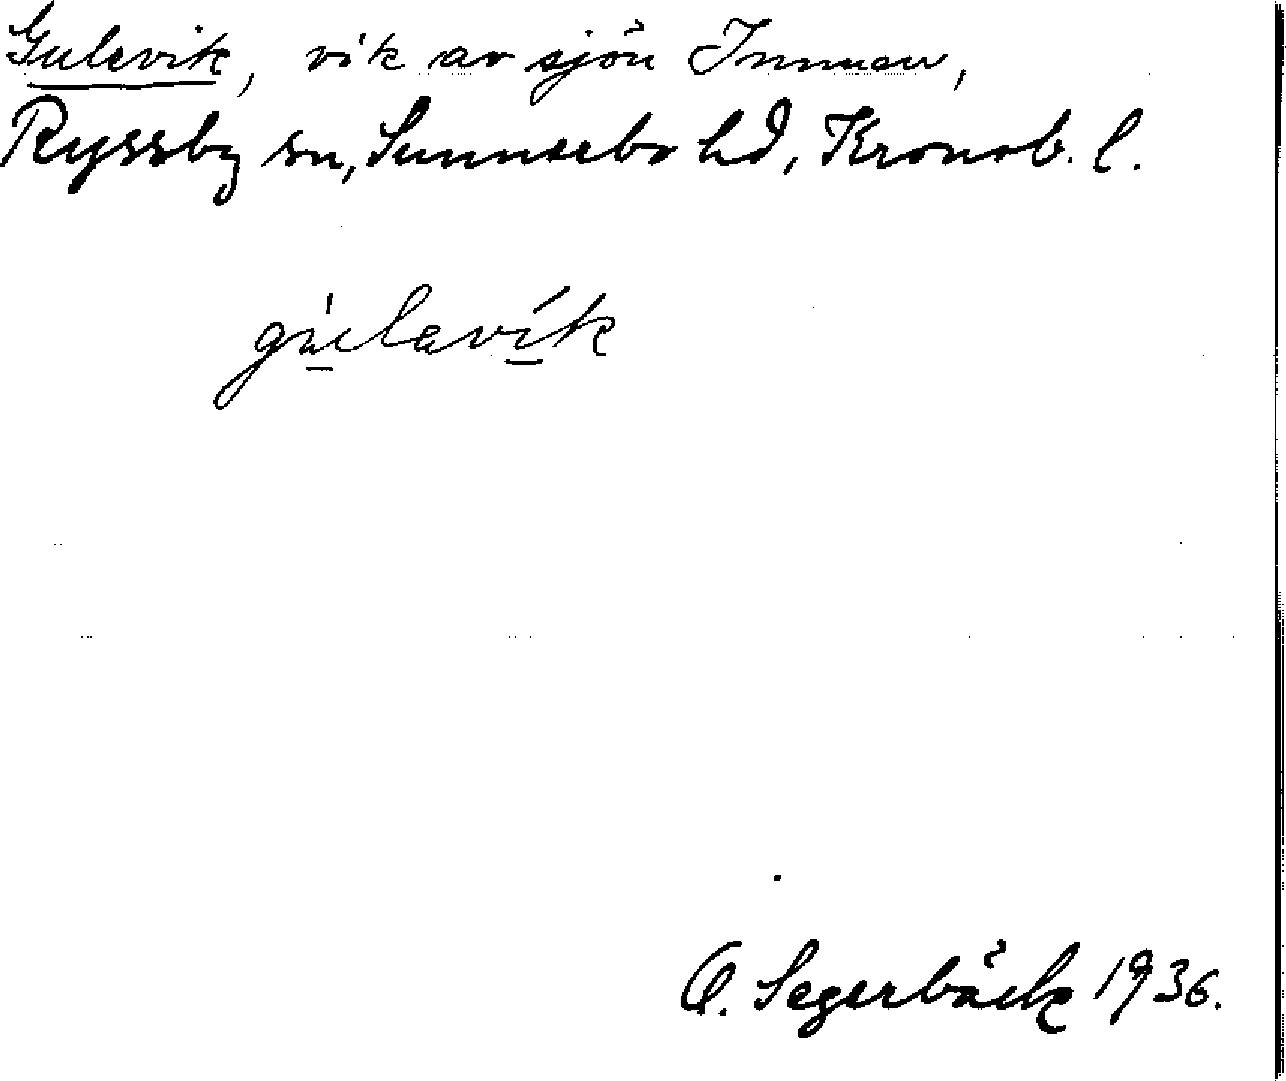 Gulevik, vik av sjön Innuen,
Ryssby sn, Sunnerbo hd, Kronob. l.
gu̲levi̲k
O. Segerbäck 1936.